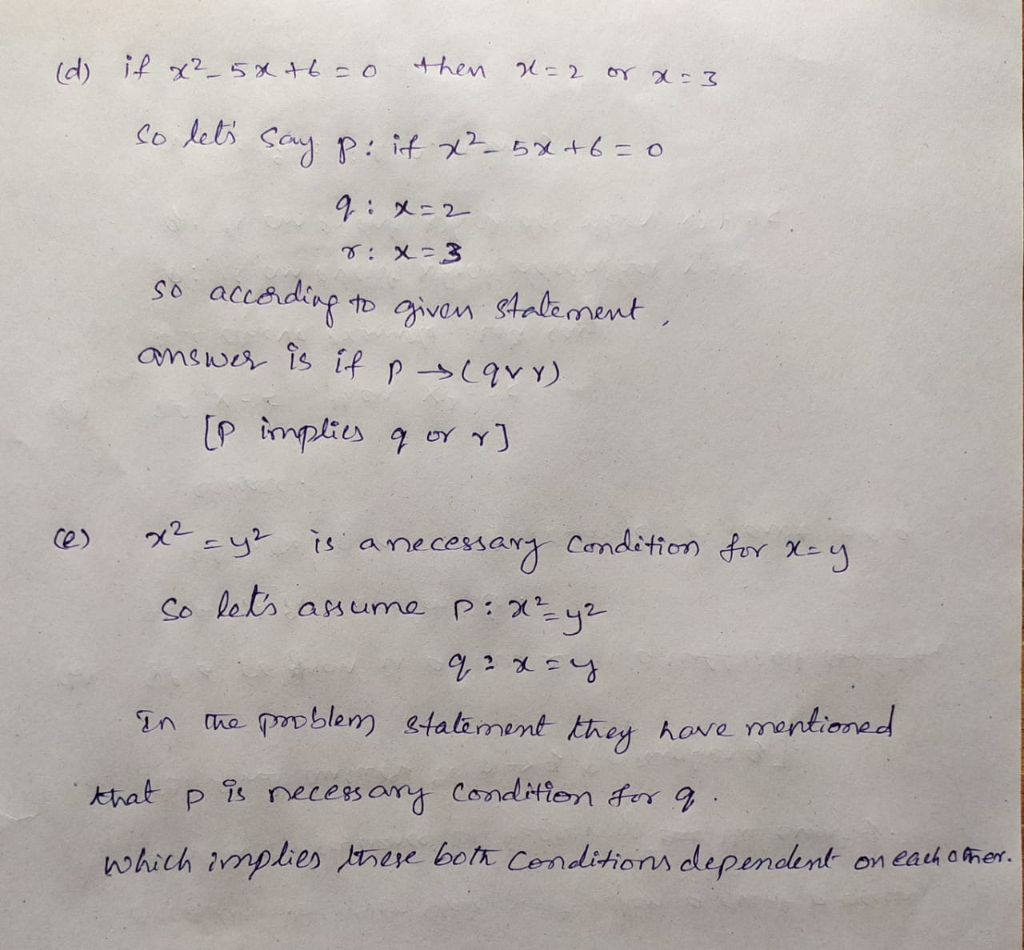 (d) if x² - 5x + 6 = 0 then x = 2 or x = 3
So let's say p: if x² - 5x + 6 = 0
q: x = 2
r: x = 3
so according to given statement,
answer is if p → (q ∨ r)
[P implies q or r]
(e) x² = y² is a necessary condition for x = y
So let's assume p: x² = y²
q: x = y
In the problem statement they have mentioned
that p is necessary condition for q.
which implies these both conditions dependent on each other.